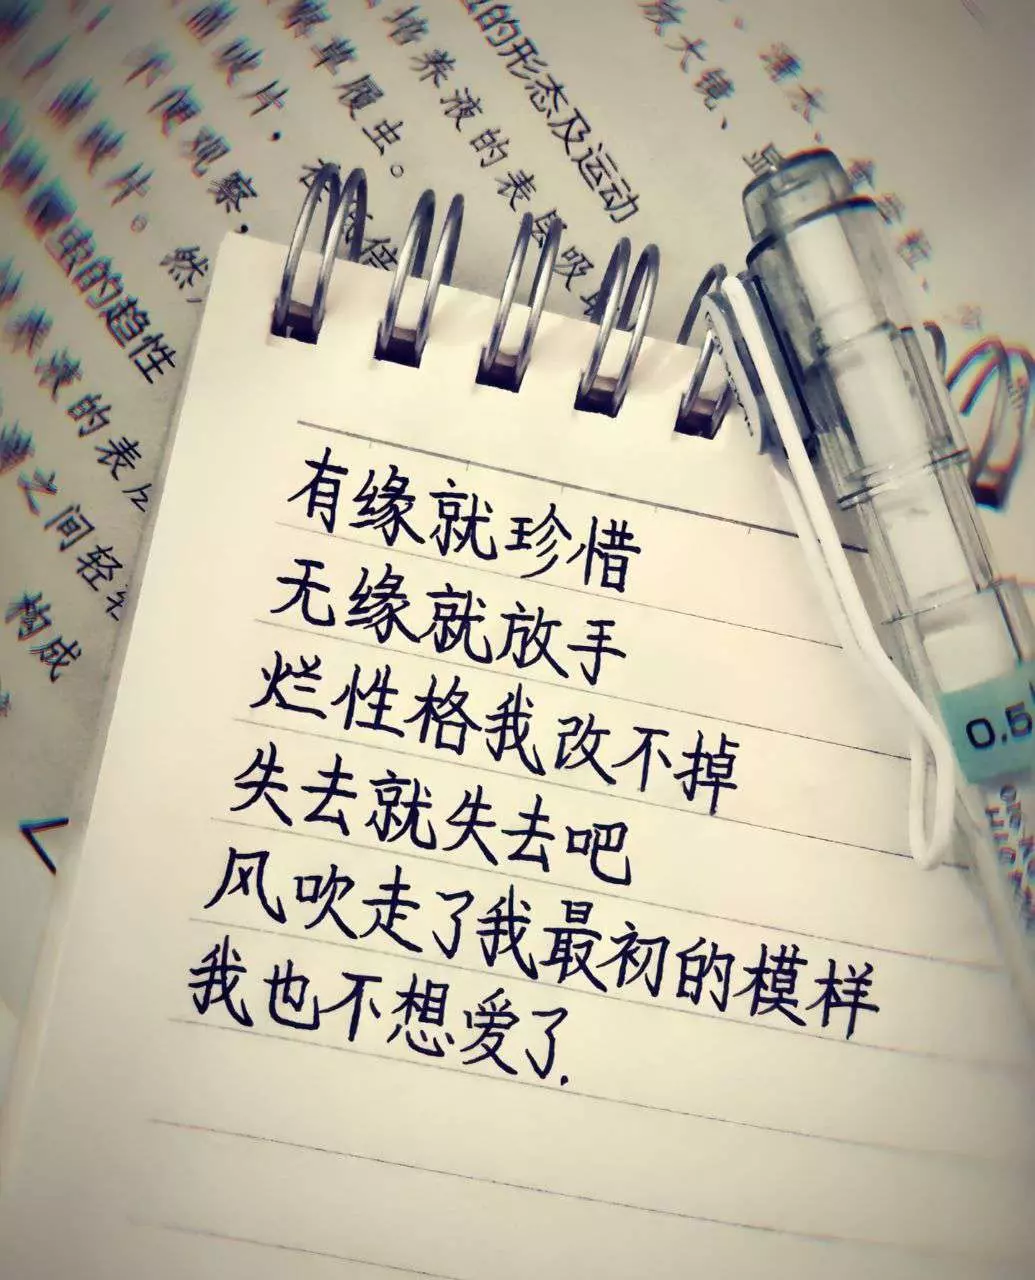 有缘就珍惜
无缘就放手
烂性格我改不掉
失去就失去吧
风吹走了我最初的模样
我也不想爱了.
的形态及运动
培养液的表层吸
草履虫。
不便观察,
片。然,
虫的趋性
液的表
之间轻
构成
放大镜、
清水、
0.5